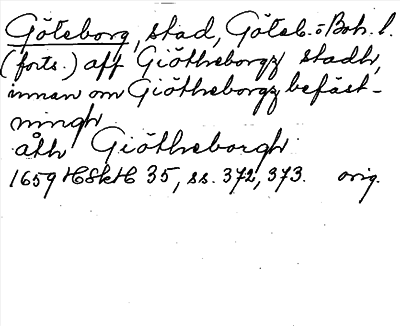 Göteborg, stad, Göteb. o Boh. l.
(forts.) aff Giötheborgz stadh,
innan om Giötheborgz befäst-
ningh
åth Giötheborgh
1659 HSkH 35, ss. 372, 373. orig.